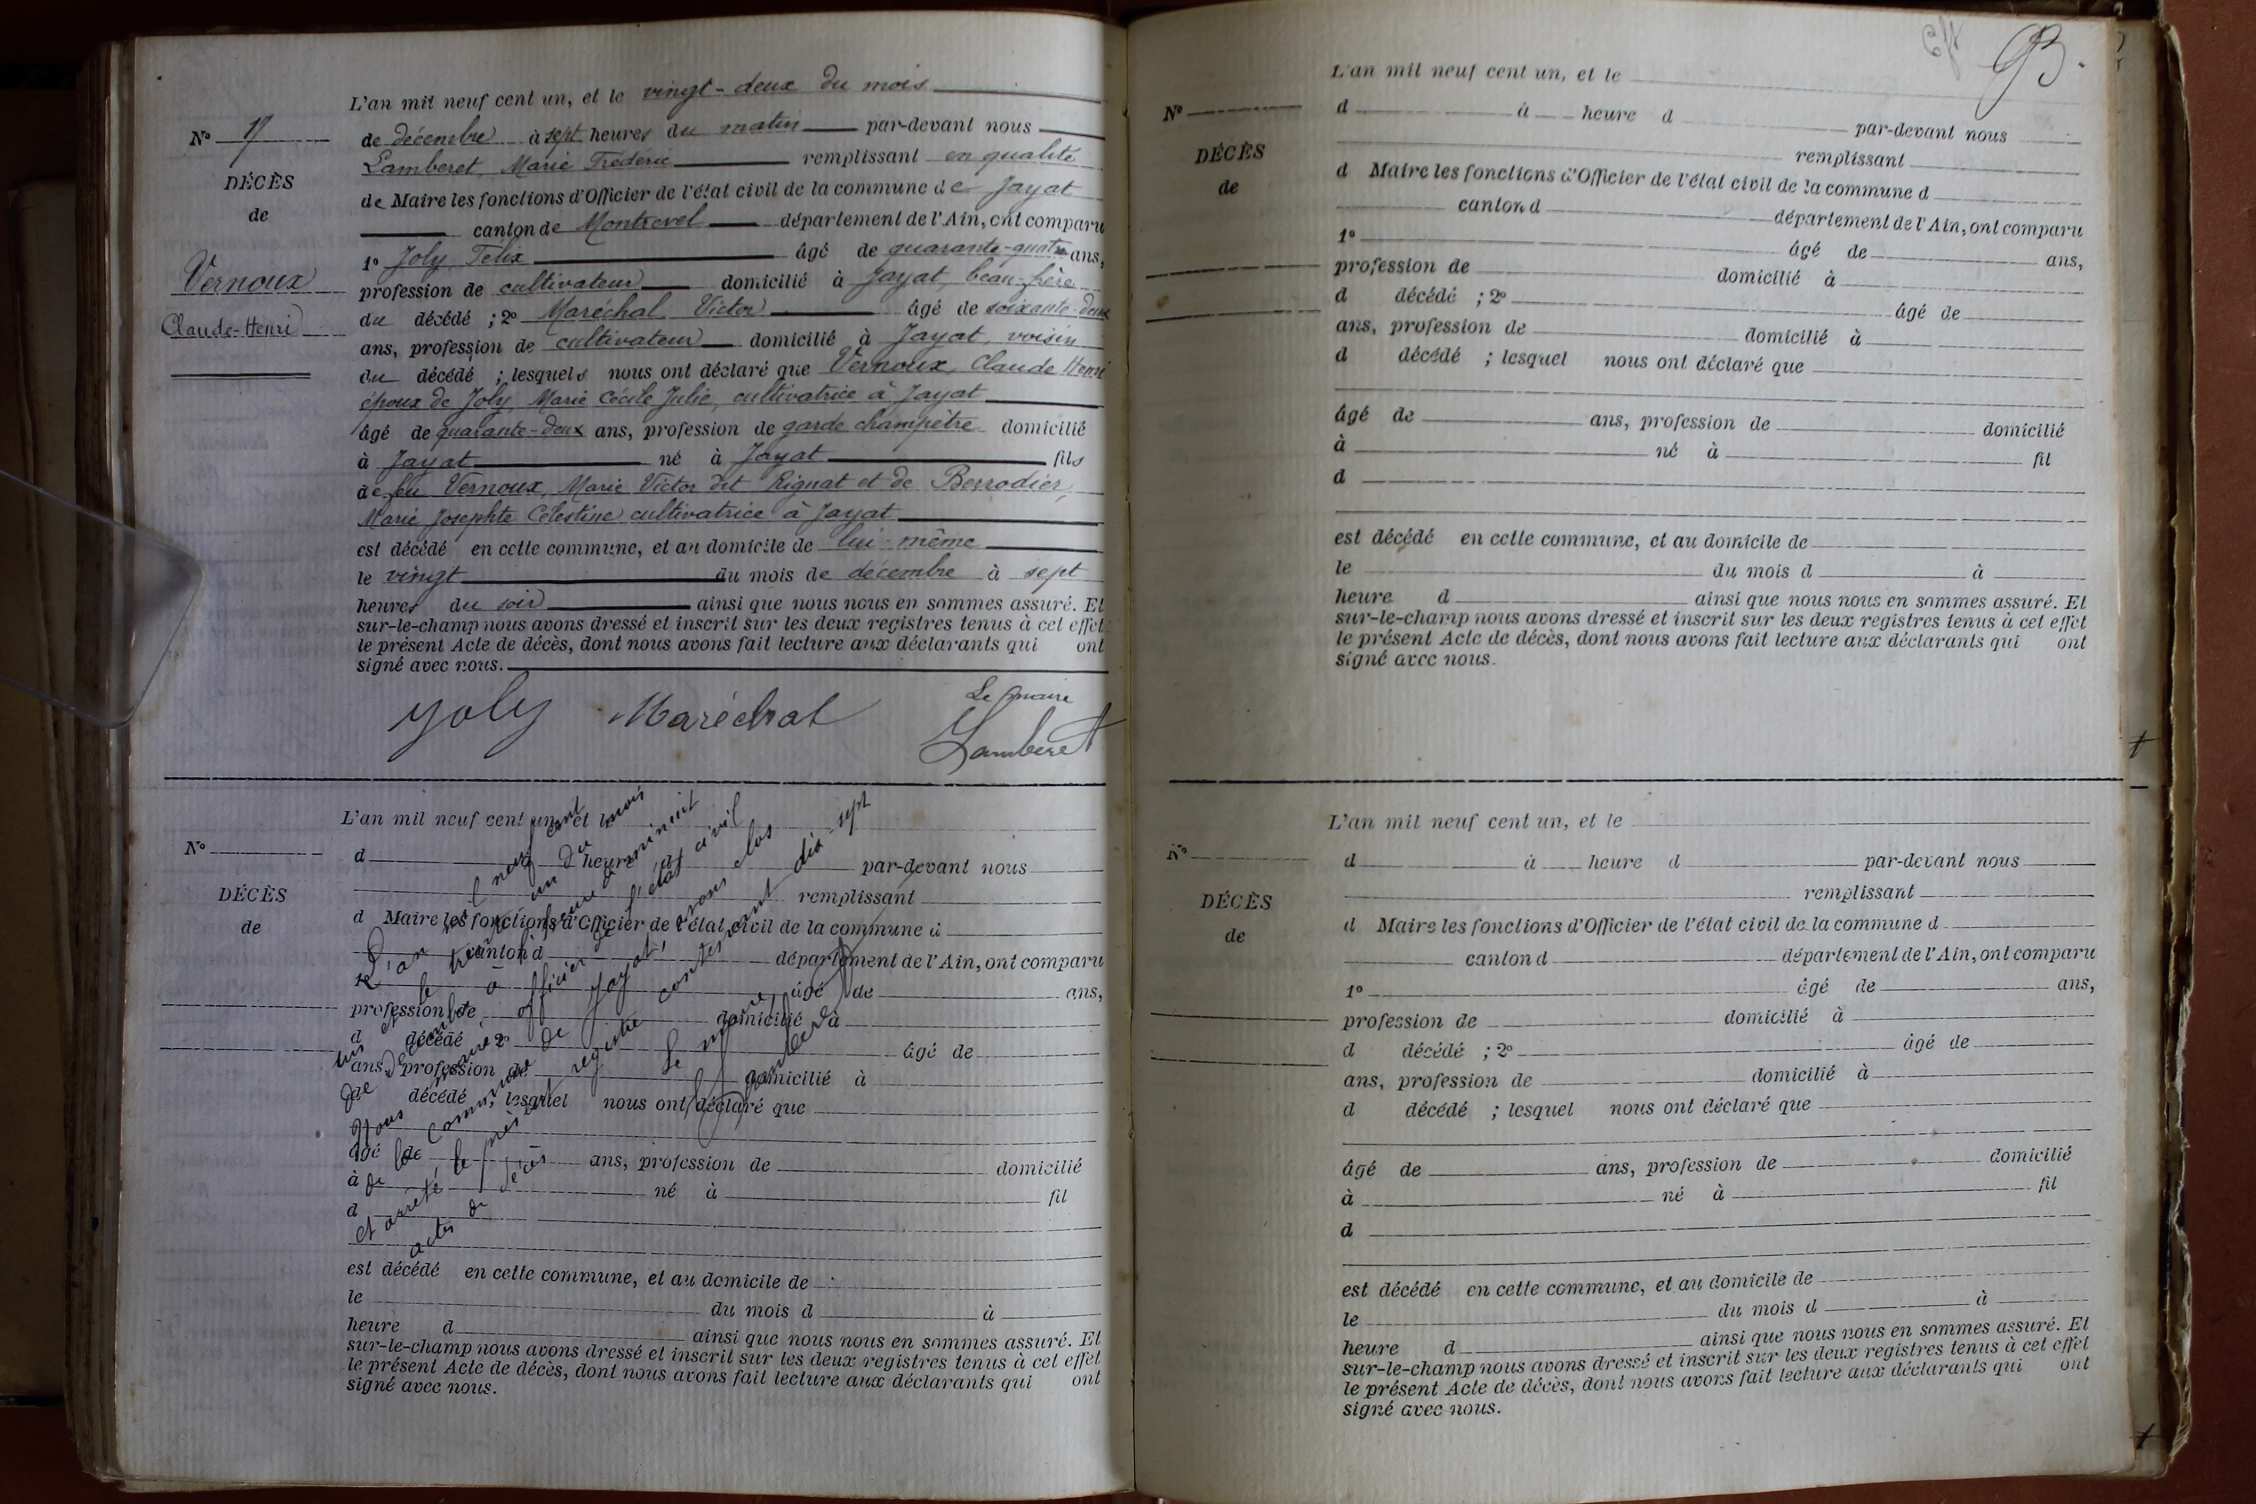 L'an mil neuf cent un, et le vingt-deux du mois
N° 17
de décembre à sept heures du matin par-devant nous
Lamberet, Marie Frédéric remplissant en qualité
DÉCÈS
de Maire les fonctions d'Officier de l'état civil de la commune de Jayat
de
canton de Montrevel département de l'Ain, ont comparu
1° Joly, Félix âgé de quarante-quatre ans,
Vernoux
profession de cultivateur domicilié à Jayat, beau-frère
Claude-Henri
du décédé ; 2° Maréchal Victor âgé de soixante-deux
ans, profession de cultivateur domicilié à Jayat, voisin
du décédé ; lesquels nous ont déclaré que Vernoux, Claude Henri
époux de Joly, Marie Cécile Julie, cultivatrice à Jayat
âgé de quarante-deux ans, profession de garde champêtre domicilié
à Jayat né à Jayat fils
de feu Vernoux, Marie Victor dit Rignat et de Berrodier,
Marie Josephte Célestine cultivatrice à Jayat
est décédé en cette commune, et au domicile de lui-même
le vingt du mois de décembre à sept
heures du soir ainsi que nous nous en sommes assuré. Et
sur-le-champ nous avons dressé et inscrit sur les deux registres tenus à cet effet
le présent Acte de décès, dont nous avons fait lecture aux déclarants qui ont
signé avec nous.
Joly Maréchal
Le maire
Lamberet
L'an mil neuf cent un, et le
N°
d à heure d par-devant nous
remplissant
DÉCÈS
d Maire les fonctions d'Officier de l'état civil de la commune d
de
canton d département de l'Ain, ont comparu
1° âgé de ans,
profession de domicilié à
d décédé ; 2° âgé de
ans, profession de domicilié à
d décédé ; lesquel nous ont déclaré que
âgé de ans, profession de domicilié
à né à fil
d
est décédé en cette commune, et au domicile de
le du mois d à
heure d ainsi que nous nous en sommes assuré. Et
sur-le-champ nous avons dressé et inscrit sur les deux registres tenus à cet effet
le présent Acte de décès, dont nous avons fait lecture aux déclarants qui ont
signé avec nous.
L'an mil neuf cent
un et le trente un du mois
de décembre à heure de minuit
Nous maire officier de l'état civil
de la commune de Jayat, avons clos
et arrêté le présent registre contenant dix-sept
actes de décès
Le maire,
Lamberet
93.
L'an mil neuf cent un, et le
N°
d à heure d par-devant nous
remplissant
DÉCÈS
d Maire les fonctions d'Officier de l'état civil de la commune d
de
canton d département de l'Ain, ont comparu
1° âgé de ans,
profession de domicilié à
d décédé ; 2° âgé de
ans, profession de domicilié à
d décédé ; lesquel nous ont déclaré que
âgé de ans, profession de domicilié
à né à fil
d
est décédé en cette commune, et au domicile de
le du mois d à
heure d ainsi que nous nous en sommes assuré. Et
sur-le-champ nous avons dressé et inscrit sur les deux registres tenus à cet effet
le présent Acte de décès, dont nous avons fait lecture aux déclarants qui ont
signé avec nous.
L'an mil neuf cent un, et le
N°
d à heure d par-devant nous
remplissant
DÉCÈS
d Maire les fonctions d'Officier de l'état civil de la commune d
de
canton d département de l'Ain, ont comparu
1° âgé de ans,
profession de domicilié à
d décédé ; 2° âgé de
ans, profession de domicilié à
d décédé ; lesquel nous ont déclaré que
âgé de ans, profession de domicilié
à né à fil
d
est décédé en cette commune, et au domicile de
le du mois d à
heure d ainsi que nous nous en sommes assuré. Et
sur-le-champ nous avons dressé et inscrit sur les deux registres tenus à cet effet
le présent Acte de décès, dont nous avons fait lecture aux déclarants qui ont
signé avec nous.